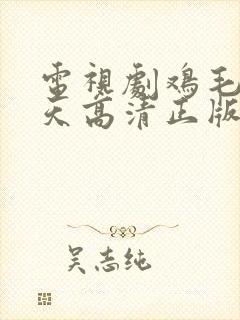 電視劇鸡毛
天高清正版
吴志纯